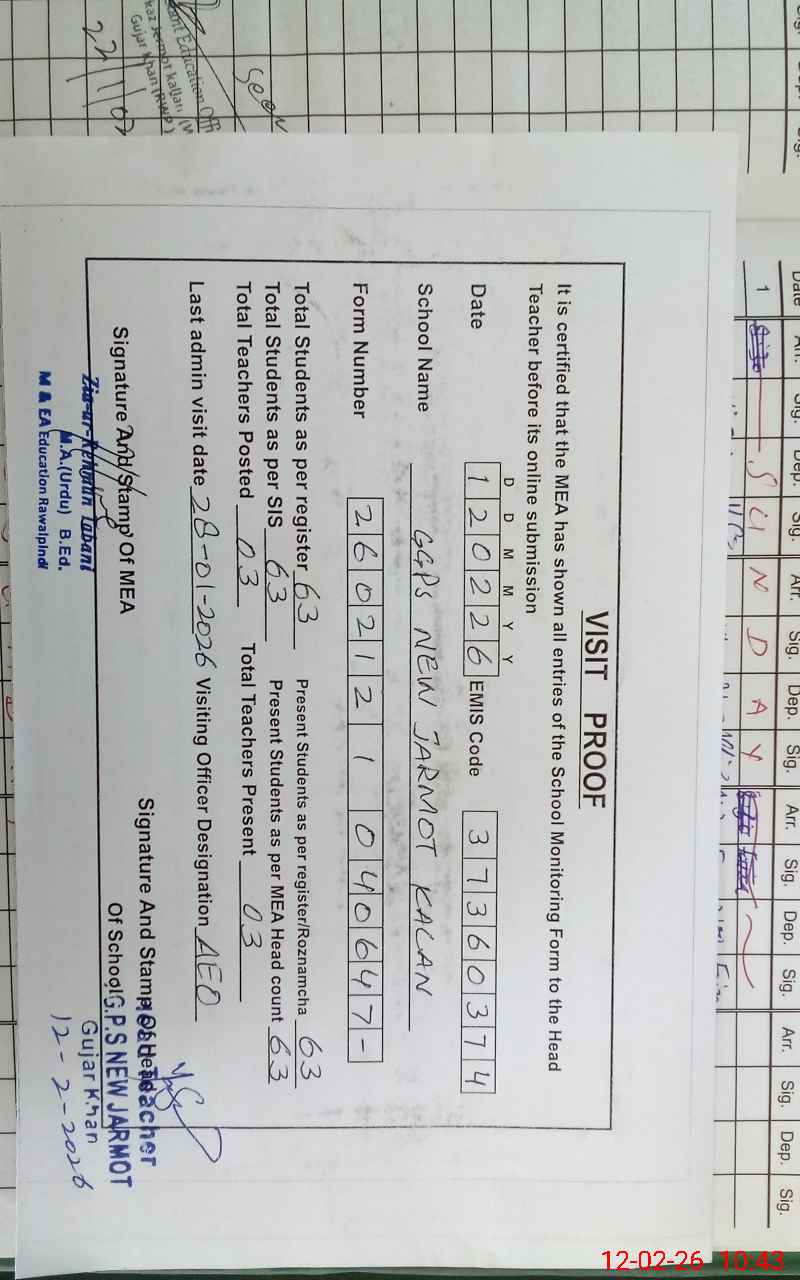 VISIT PROOF
It is certified that the MEA has shown all entries of the School Monitoring Form to the Head
Teacher before its online submission
D D M M Y Y
Date 120226 EMIS Code 37360374
School Name GGPS NEW JARMOT KALAN
Form Number 260212104 0647-
Total Students as per register 63 Present Students as per register/Roznamcha 63
Total Students as per SIS 63 Present Students as per MEA Head count 63
Total Teachers Posted 03 Total Teachers Present 03
Last admin visit date 28-01-2026 Visiting Officer Designation AEO
Signature And Stamp Of MEA
Signature And Stamp Of Head
Of School
Zia-ur-Rehman
M.A.(Urdu) B.Ed.
M & EA Education Rawalpindi
Head Teacher
G.P.S NEW JARMOT
Gujar Khan
12-2-2026
Date Arr. Sig. Dep. Sig. Arr. Sig. Dep. Sig. Arr. Sig. Dep. Sig. Arr. Sig. Dep. Sig.
1 SUNDAY
Seen
Education
Gujar Khan (RWP)
12-02-26 10:43